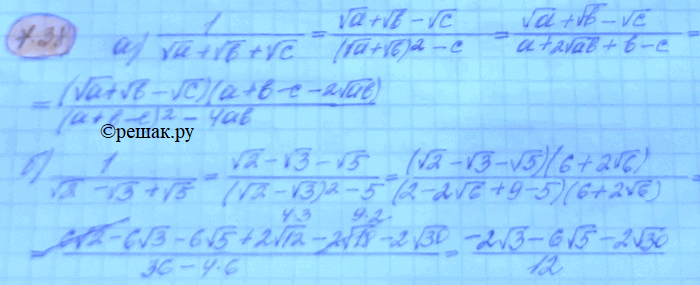 7.38
а) 1/(√a + √b + √c) = (√a + √b − √c)/((√a + √b)² − c) = (√a + √b − √c)/(a + 2√ab + b − c) =
= (√a + √b − √c)(a + b − c − 2√ab)/((a + b − c)² − 4ab
©решак.ру
б) 1/(√2 − √3 + √5) = (√2 − √3 − √5)/((√2 − √3)² − 5) = (√2 − √3 − √5)(6 + 2√6)/((2 − 2√6 + 9 − 5)(6 + 2√6)) =
4·3 9·2
= (6√2 − 6√3 − 6√5 + 2√12 − 2√18 − 2√30)/(36 − 4·6) = (−2√3 − 6√5 − 2√30)/12